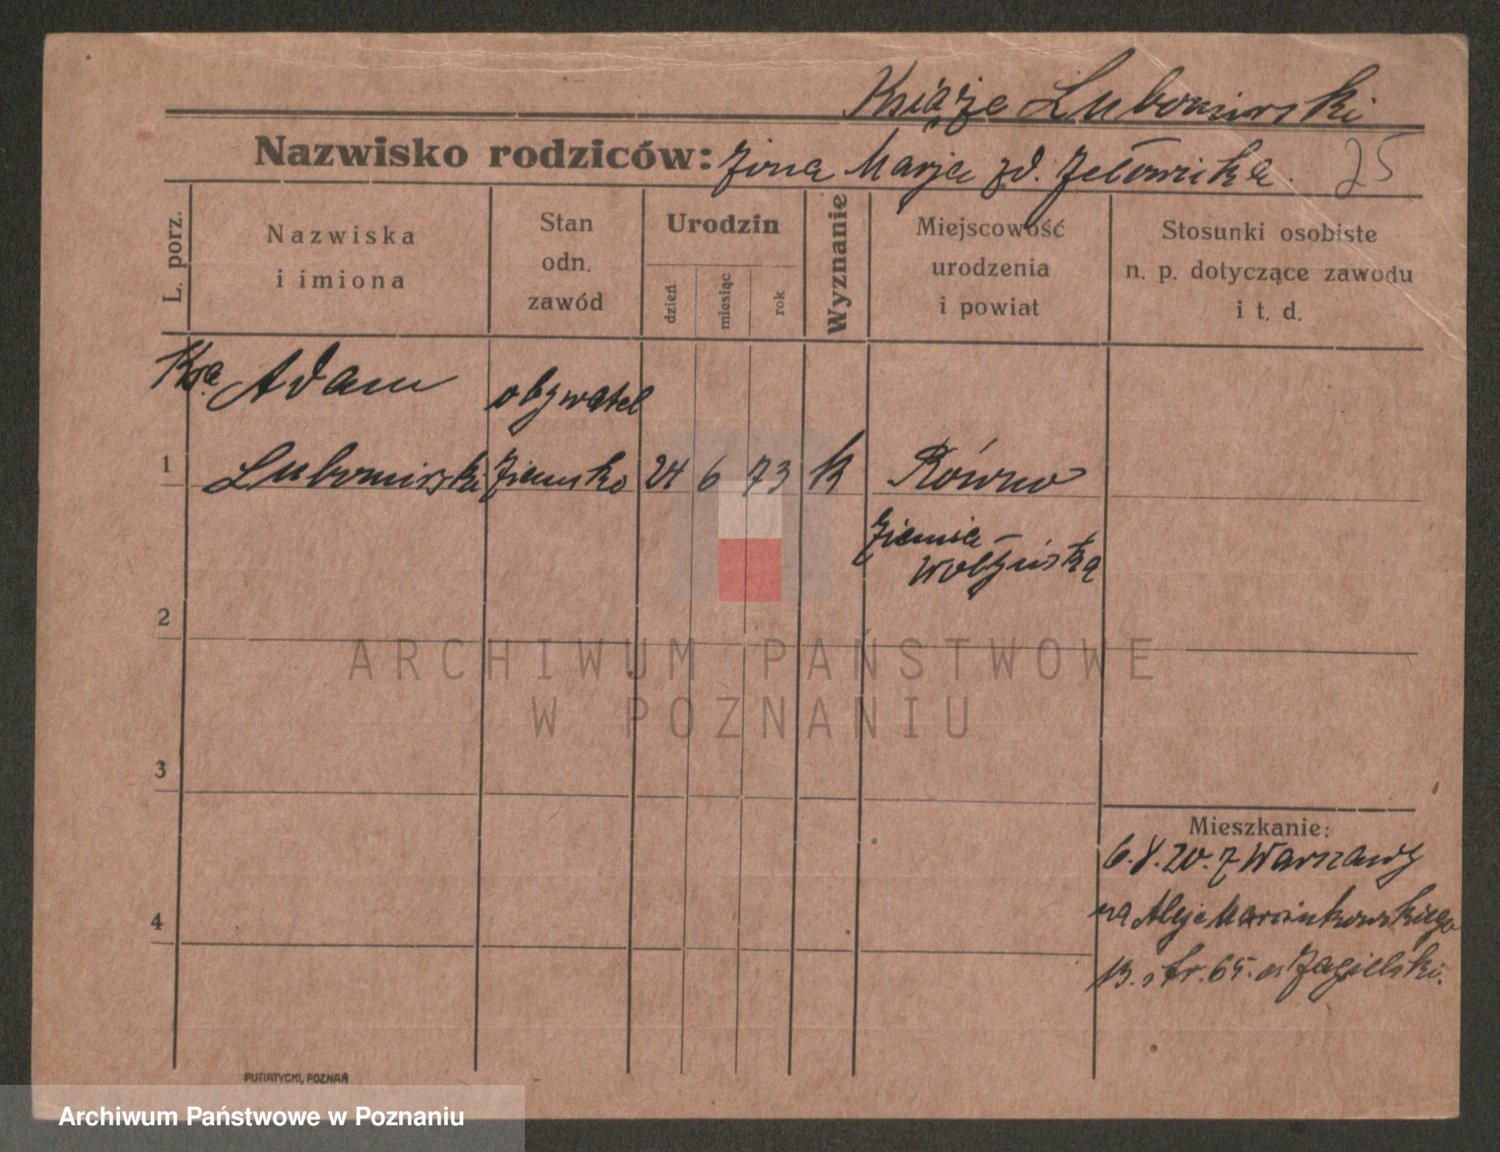 Książe Lubomirski
Nazwisko rodziców: żona Marja zd. Jełowicka. 25
L. porz.
Nazwiska
i imiona
Stan
odn.
zawód
Urodzin
dzień
miesiąc
rok
Wyznanie
Miejscowość
urodzenia
i powiat
Stosunki osobiste
n. p. dotyczące zawodu
i t. d.
Adam obywatel
1 Lubomirski ziemski 24 6 73 K Równo
Ziemia
Wołyńska
2
ARCHIWUM PAŃSTWOWE
W POZNANIU
3
Mieszkanie:
6.8.20. z Warszawy
na Aleje Marcinkowskiego
4
13. str. 65. u Jagielski.
PUTIATYCKI, POZNAŃ
Archiwum Państwowe w Poznaniu